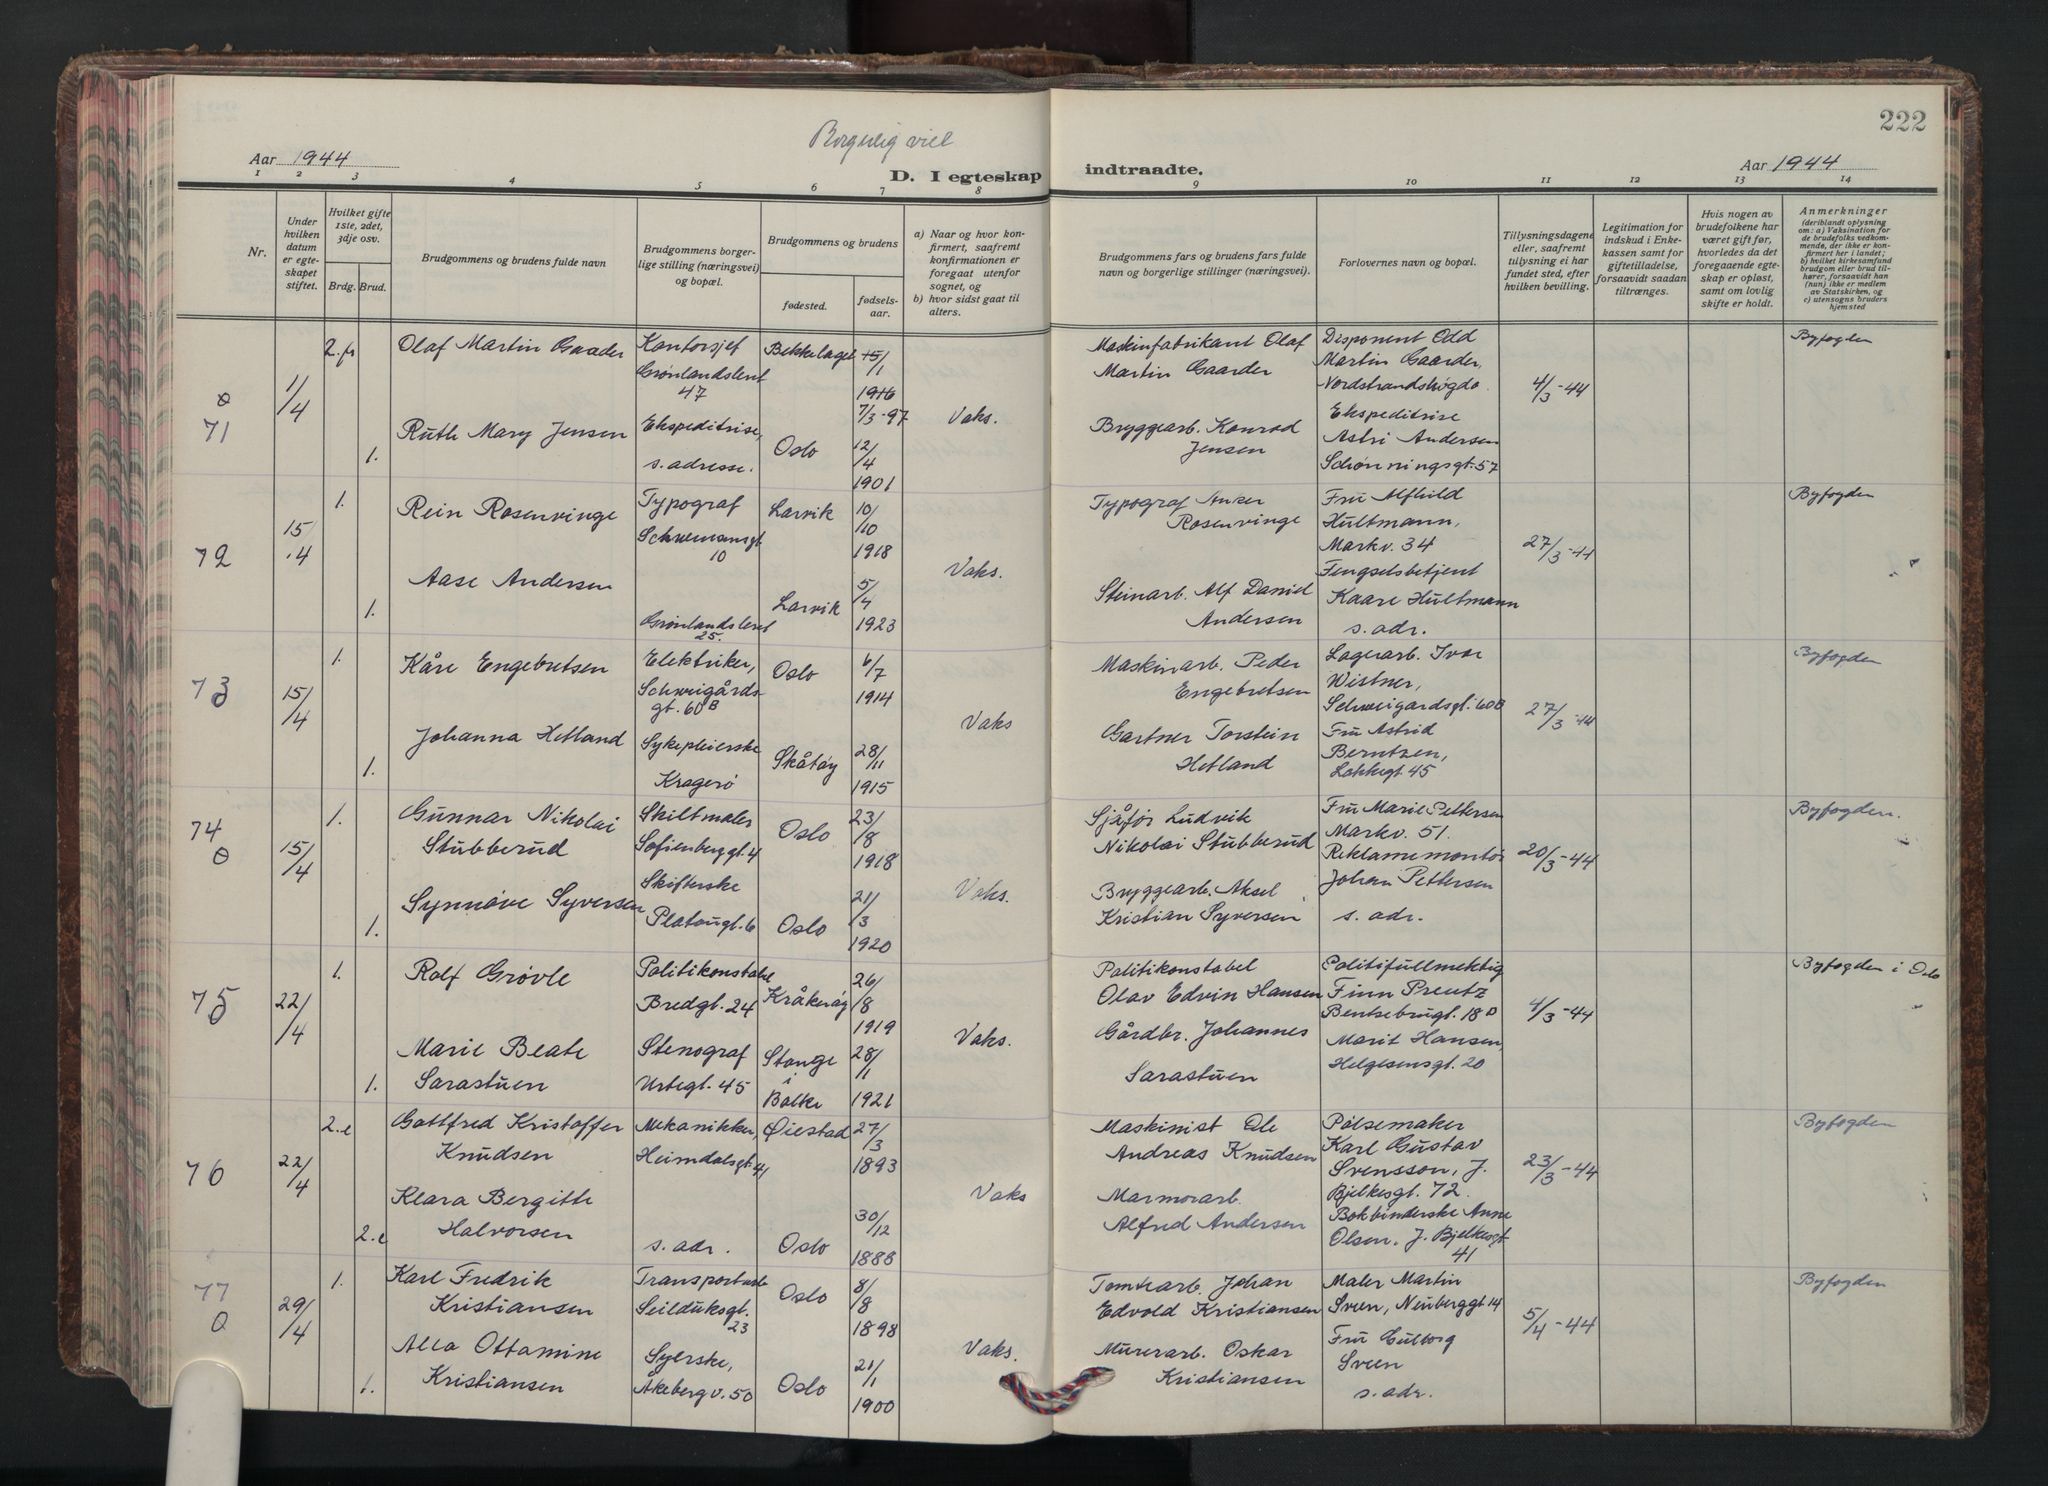 222
Borgerlig viet
Aar 1944
D. I egteskap indtraadte.
Aar 1944
1 2 3 4 5 6 7 8 9 10 11 12 13 14
Nr.
Under hvilken datum er egteskapet stiftet.
Hvilket gifte 1ste, 2det, 3dje osv.
Brdg. Brud.
Brudgommens og brudens fulde navn
Brudgommens borgerlige stilling (næringsvei) og bopæl.
Brudgommens og brudens
fødested.
fødselsaar.
a) Naar og hvor konfirmert, saafremt konfirmationen er foregaat utenfor sognet, og
b) hvor sidst gaat til alters.
Brudgommens fars og brudens fars fulde navn og borgerlige stillinger (næringsvei).
Forlovernes navn og bopæl.
Tillysningsdagene eller, saafremt tillysning ei har fundet sted, efter hvilken bevilling.
Legitimation for indskud i Enkekassen samt for giftetilladelse, forsaavidt saadan tiltrænges.
Hvis nogen av brudefolkene har været gift før, hvorledes da det foregaaende egteskap er opløst, samt om lovlig skifte er holdt.
Anmerkninger
(deriblandt oplysning om: a) Vaksination for de brudefolks vedkommende, der ikke er konfirmert her i landet; b) hvilket kirkesamfund brudgom eller brud tilhører, forsaavidt han (hun) ikke er medlem av Statskirken, og c) utensogns bruders hjemsted
71
1/4
2. fr
Olaf Martin Gaarder
Kontorsjef
Grønlandsleret
47
Bekkelaget
15/1
1916
7/3-97
Vaks.
Maskinfabrikant Olaf
Martin Gaarder
Disponent Odd
Martin Gaarder,
Nordstrandshøgda
4/3-44
Byfogden
1.
Ruth Mary Jensen
Ekspeditrise,
s. adresse.
Oslo
12/4
1901
Bryggearb. Konrad
Jensen
Ekspeditrise
Astri Andersen
Schønningsgt. 57
72
15/4
1.
Rein Rosenvinge
Typograf
Schwensensgt.
10
Larvik
10/10
1918
Vaks.
Typograf Anker
Rosenvinge
Fru Alfhild
Hultmann,
Markv. 34
27/3-44
Byfogden
1.
Aase Andersen
Grønlandsleret
25.
Larvik
5/4
1923
Steinarb. Alf Daniel
Andersen
Fengselsbetjent
Kaare Hultmann
s. adr.
73
15/4
1.
Kåre Engebretsen
Elektriker,
Schweigårds-
gt. 60 B
Oslo
6/7
1914
Vaks
Maskinarb. Peder
Engebretsen
Lagerarb. Ivar
Wistner,
Schweigardsgt. 60B
27/3-44
Byfogden
1.
Johanna Hetland
Sykepleierske
Kragerø
Skåtøy
28/11
1915
Gartner Torstein
Hetland
Fru Astrid
Berntzen,
Lakkegt. 45
74
15/4
1.
Gunnar Nikolai
Stubberud
Skiltmaler
Sofienberggt. 4
Oslo
23/8
1918
Vaks.
Sjåfør Ludvik
Nikolai Stubberud
Fru Marie Pettersen
Markv. 51.
20/3-44
Byfogden.
1.
Synnøve Syversen
Skifterske
Platougt. 6
Oslo
21/3
1920
Bryggearb. Aksel
Kristian Syversen
Reklamemontør
Johan Pettersen
s. adr.
75
22/4
1.
Rolf Grøvle
Politikonstabel
Bredgt. 24
Kråkerøy
26/8
1919
Vaks.
Politikonstabel
Olav Edvin Hansen
Politifullmektig
Finn Preutz
Bentsebrugt. 18 B
4/3-44
Byfogden i Oslo
1.
Marie Beate
Sarastuen
Stenograf
Urtegt. 45
Stange
i
Balke
28/1
1921
Gårdbr. Johannes
Sarastuen
Marit Hansen,
Helgesensgt. 20
76
22/4
2. e
Gottfred Kristoffer
Knudsen
Mekanikker,
Heimdalsgt. 4
Øiestad
27/3
1893
Vaks
Maskinist Ole
Andreas Knudsen
Pølsemaker
Karl Gustav
Svensson, J.
Bjelkesgt. 72.
23/3-44
Byfogden
2. e
Klara Bergitte
Halvorsen
s. adr.
Oslo
30/12
1888
Marmorarb.
Alfred Andersen
Bokbinderske Anne
Olsen, J. Bjelkesgt
41
77
29/4
1.
Karl Fredrik
Kristiansen
Transportarb
Seilduksgt.
23
Oslo
8/8
1898
Vaks.
Tomtearb. Johan
Edvold Kristiansen
Maler Martin
Sveen, Neuberggt. 14
5/4-44
Byfogden
1.
Alla Ottomine
Kristiansen
Syerske,
Åkeberg v. 50
Oslo
21/1
1900
Murerarb. Oskar
Kristiansen
Fru Gulborg
Sveen
s. adr.